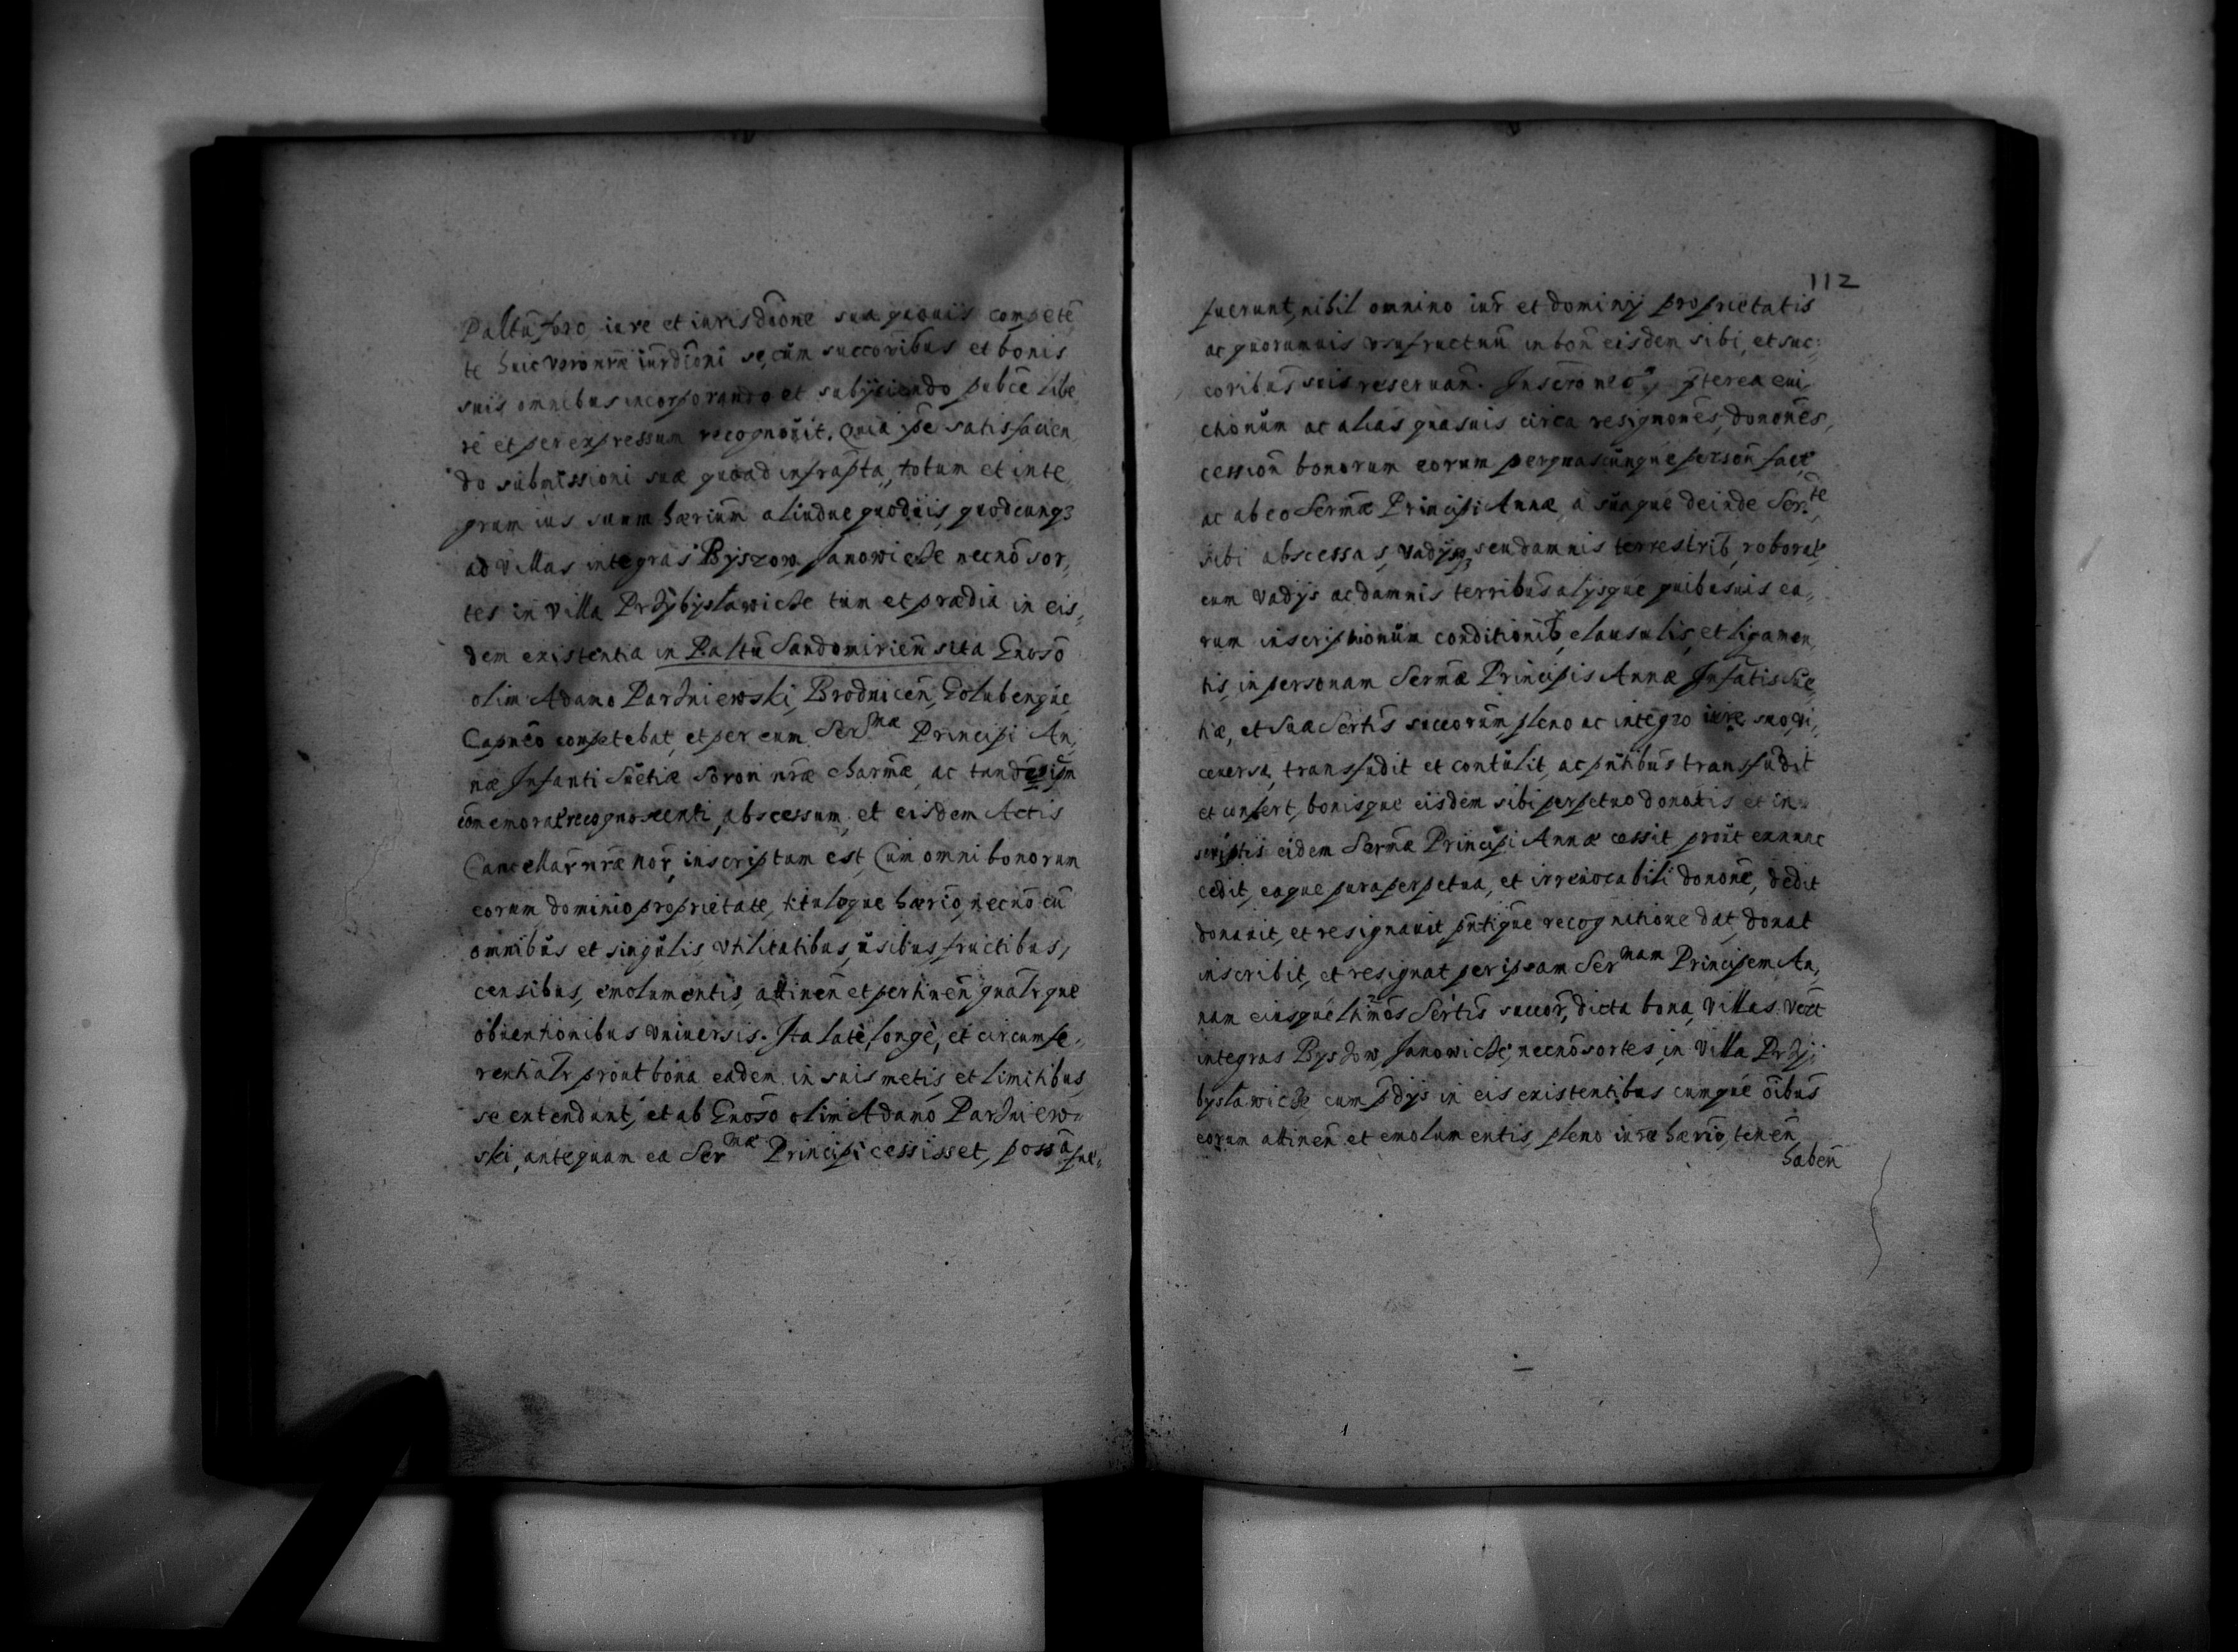 Paltũ, foro iure et iurisdiõne sua quouis competẽ
te huic vero nr̃æ iurdĩoni se, cũm succoribus et bonis
suis omnibus incorporando et subÿciendo pubce libe
re et per expressum recognouit. Quia ipe satisfacien
do submissioni suæ quoad infrapta, totum et inte
grum ius suum hærium aliudue quoduis quodcunqȝ
ad villas integras Byszow, Janowicze necnõ sor,
tes in villa Przÿbysławicze tum et prædia in eis,
dem existentia in Paltũ Sandomirieñ sita Gnoso
olim Adamo Parzniewski, Brodniceñ, Golubenque
Capneo competebat, et per eum Serᵐæ Principi An,
næ Infanti Suetiæ Sorori nr̃æ charmæ, ac tandem ipi
com̃emorat recognoscenti, abscessum, et eisdem Actis
Cancellar nr̃æ nor̃, inscriptum est, Cum omni bonorum
eorum dominio proprietate, tituloque hærio, necnõ cũ
omnibus et singulis, vtilitatibus, usibus fructibus,
censibus, emolumentis, attineñ et pertineñ qualrque
obuentionibus vniuersis. Ita late, longe, et circumfe,
rentialr prout bona eadem in suis metis, et limitibus,
se extendunt, et ab Gnoso olim Adamo Parzniew,
ski, antequam ea Serᵐæ Principi cessisset, possa fue,
112
fuerunt, nihil omnino iur̃ et dominÿ proprietatis
ac quorumuis vsufructuũ in boñ eisdem sibi, et suc:
coribus suis reseruañ. Inscro nes pterea eui,
ctionum ac alias quasuis circa resignones, donones,
cessioñ bonorum eorum per quascunque persoñ fact
ac ab eo Sermæ Principi Annæ, a suaque deinde Serᵗᵉ
sibi abscessas, vadÿsqȝ seu damnis terrestrib, roborat
cum vadÿs ac damnis terribus alÿsque quibusuis ea,
rum inscriptionum conditionib, clausulis, et ligamen,
tis, in personam Sermæ Principis Annæ Infãtis Sue,
tiæ, et Suæ Sertis succorum pleno ac integro iure suo, vi,
ceuersa, transfudit et contulit, ac pntibus transfudit
et confert, bonisque eisdem sibi perpetuo donatis et in,
scriptis eidem Sermæ Principi Annæ cessit prout exnunc
cedit, eaque pura perpetua, et irreuocabili donone, dedit
donauit, et resignauit pntique recognitione dat, donat
inscribit, et resignat per ipsam Serᵐᵃᵐ Principem An,
nam eiusque ltimos Sertis succor̃, dicta bona, villas vezt
integras Byszow, Janowicze, necnõ sortes, in villa Przÿ,
bysławicze cum pdÿs in eis existentibus cumque oibus
eorum attineñ et emolumentis, pleno iure hærio, teneñ,
habeñ